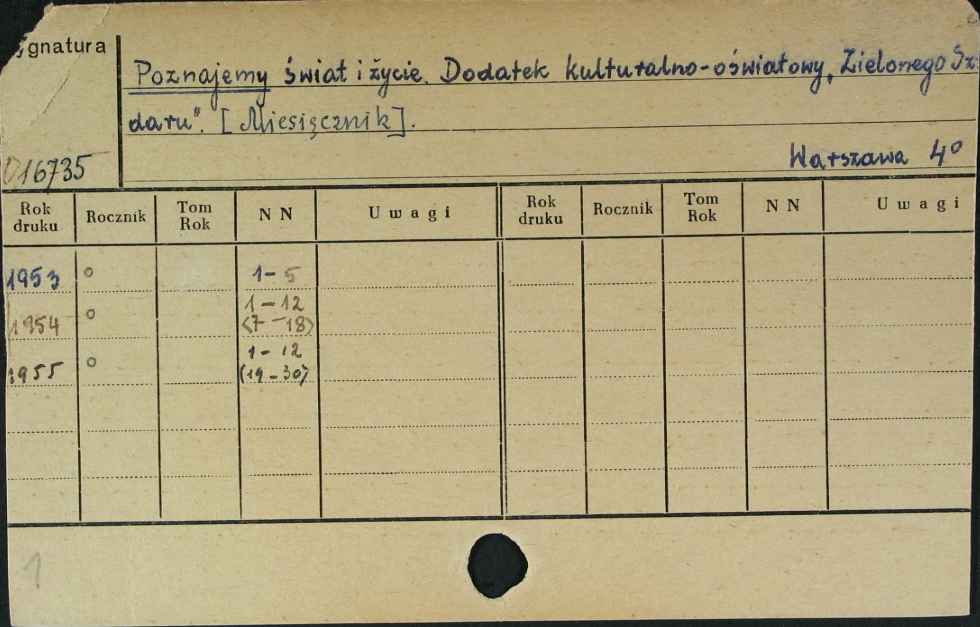 ygnatura
Poznajemy świat i życie. Dodatek kulturalno-oświatowy „Zielonego Sz
daru". [Miesięcznik].
016735
Warszawa 4°
Rok druku Rocznik Tom Rok NN Uwagi Rok druku Rocznik Tom Rok NN Uwagi
1953 ° 1-5
1954 ° 1-12
(7-18)
1955 ° 1-12
(19-30)
1